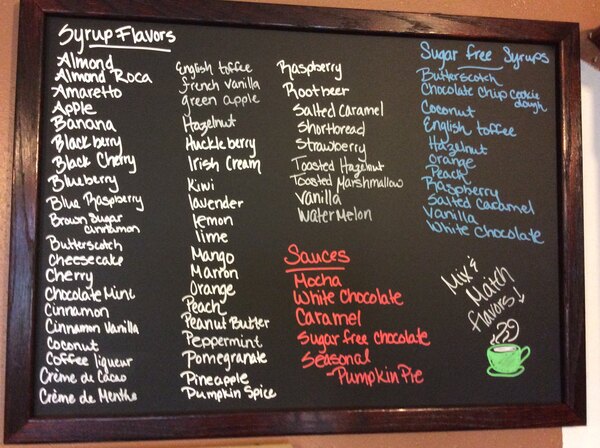 Syrup Flavors
Almond
Almond Roca
Amaretto
Apple
Banana
Blackberry
Black Cherry
Blueberry
Blue Raspberry
Brown Sugar
cinnamon
Butterscotch
Cheesecake
Cherry
Chocolate Mint
Cinnamon
Cinnamon Vanilla
Coconut
Coffee liqueur
Crème de Cacao
Crème de Menthe
English toffee
french vanilla
green apple
Hazelnut
Huckleberry
Irish Cream
Kiwi
lavender
lemon
lime
Mango
Marron
Orange
Peach
Peanut Butter
Peppermint
Pomegranate
Pineapple
Pumpkin Spice
Raspberry
Rootbeer
Salted Caramel
Shortbread
Strawberry
Toasted Hazelnut
Toasted Marshmallow
Vanilla
Watermelon
Sauces
Mocha
White Chocolate
Caramel
Sugar free chocolate
Seasonal
-Pumpkin Pie
Sugar free Syrups
Butterscotch
Chocolate Chip cookie
dough
Coconut
English toffee
Hazelnut
Orange
Peach
Raspberry
Salted Caramel
Vanilla
White Chocolate
Mix &
Match
flavors!